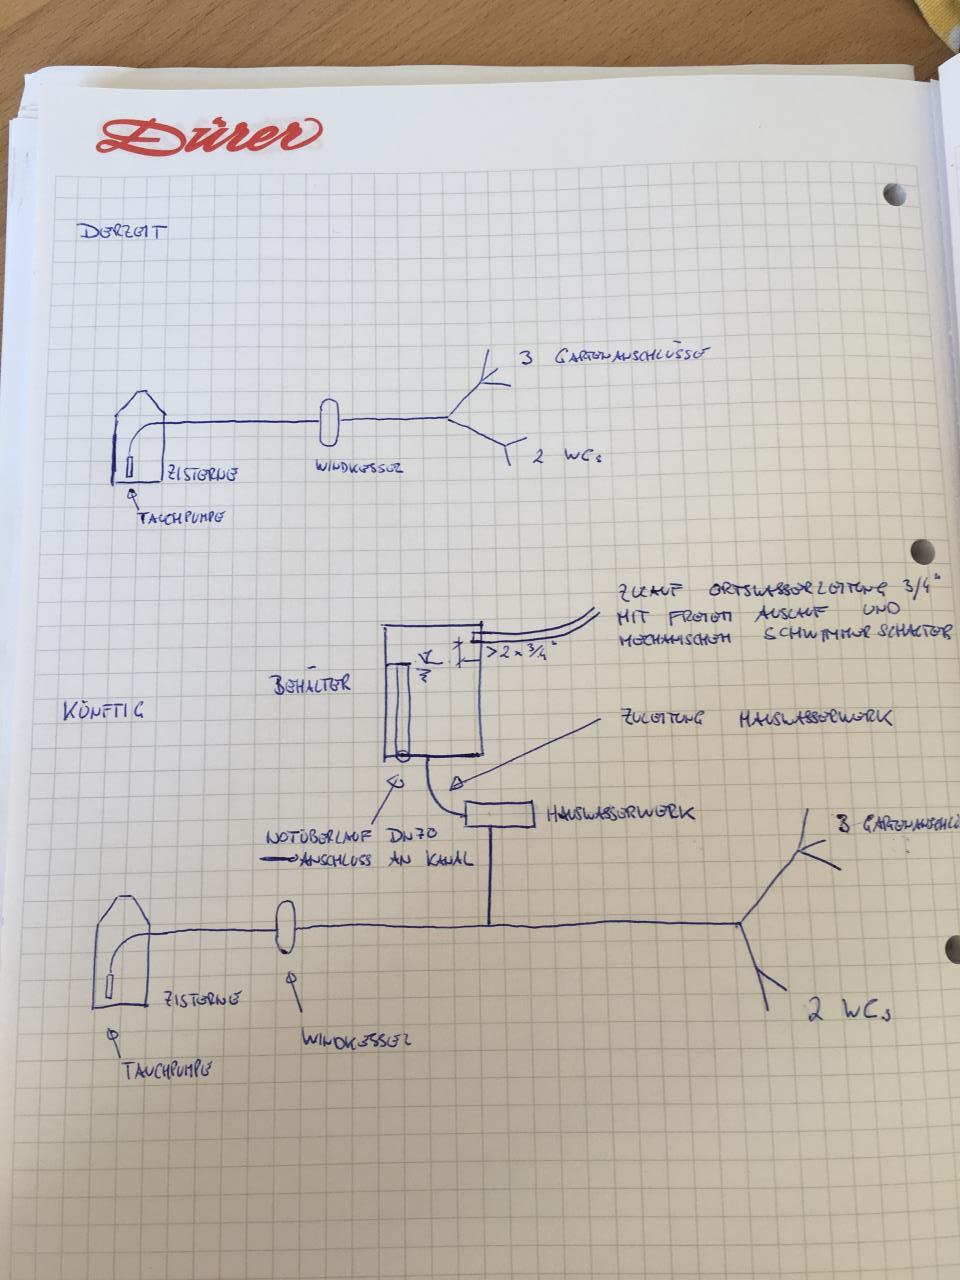 Dürer
DERZEIT
3 GARTENANSCHLÜSSE
2 WCs
WINDKESSEL
ZISTERNE
TAUCHPUMPE
ZULAUF ORTSWASSERLEITUNG 3/4"
MIT FREIEM AUSLAUF UND
MECHANISCHEM SCHWIMMERSCHALTER
>2 x 3/4"
BEHÄLTER
KÜNFTIG
ZULEITUNG HAUSWASSERWERK
HAUSWASSERWERK
NOTÜBERLAUF DN70
ANSCHLUSS AN KANAL
3 GARTENANSCHLÜ
ZISTERNE
2 WCs
WINDKESSEL
TAUCHPUMPE